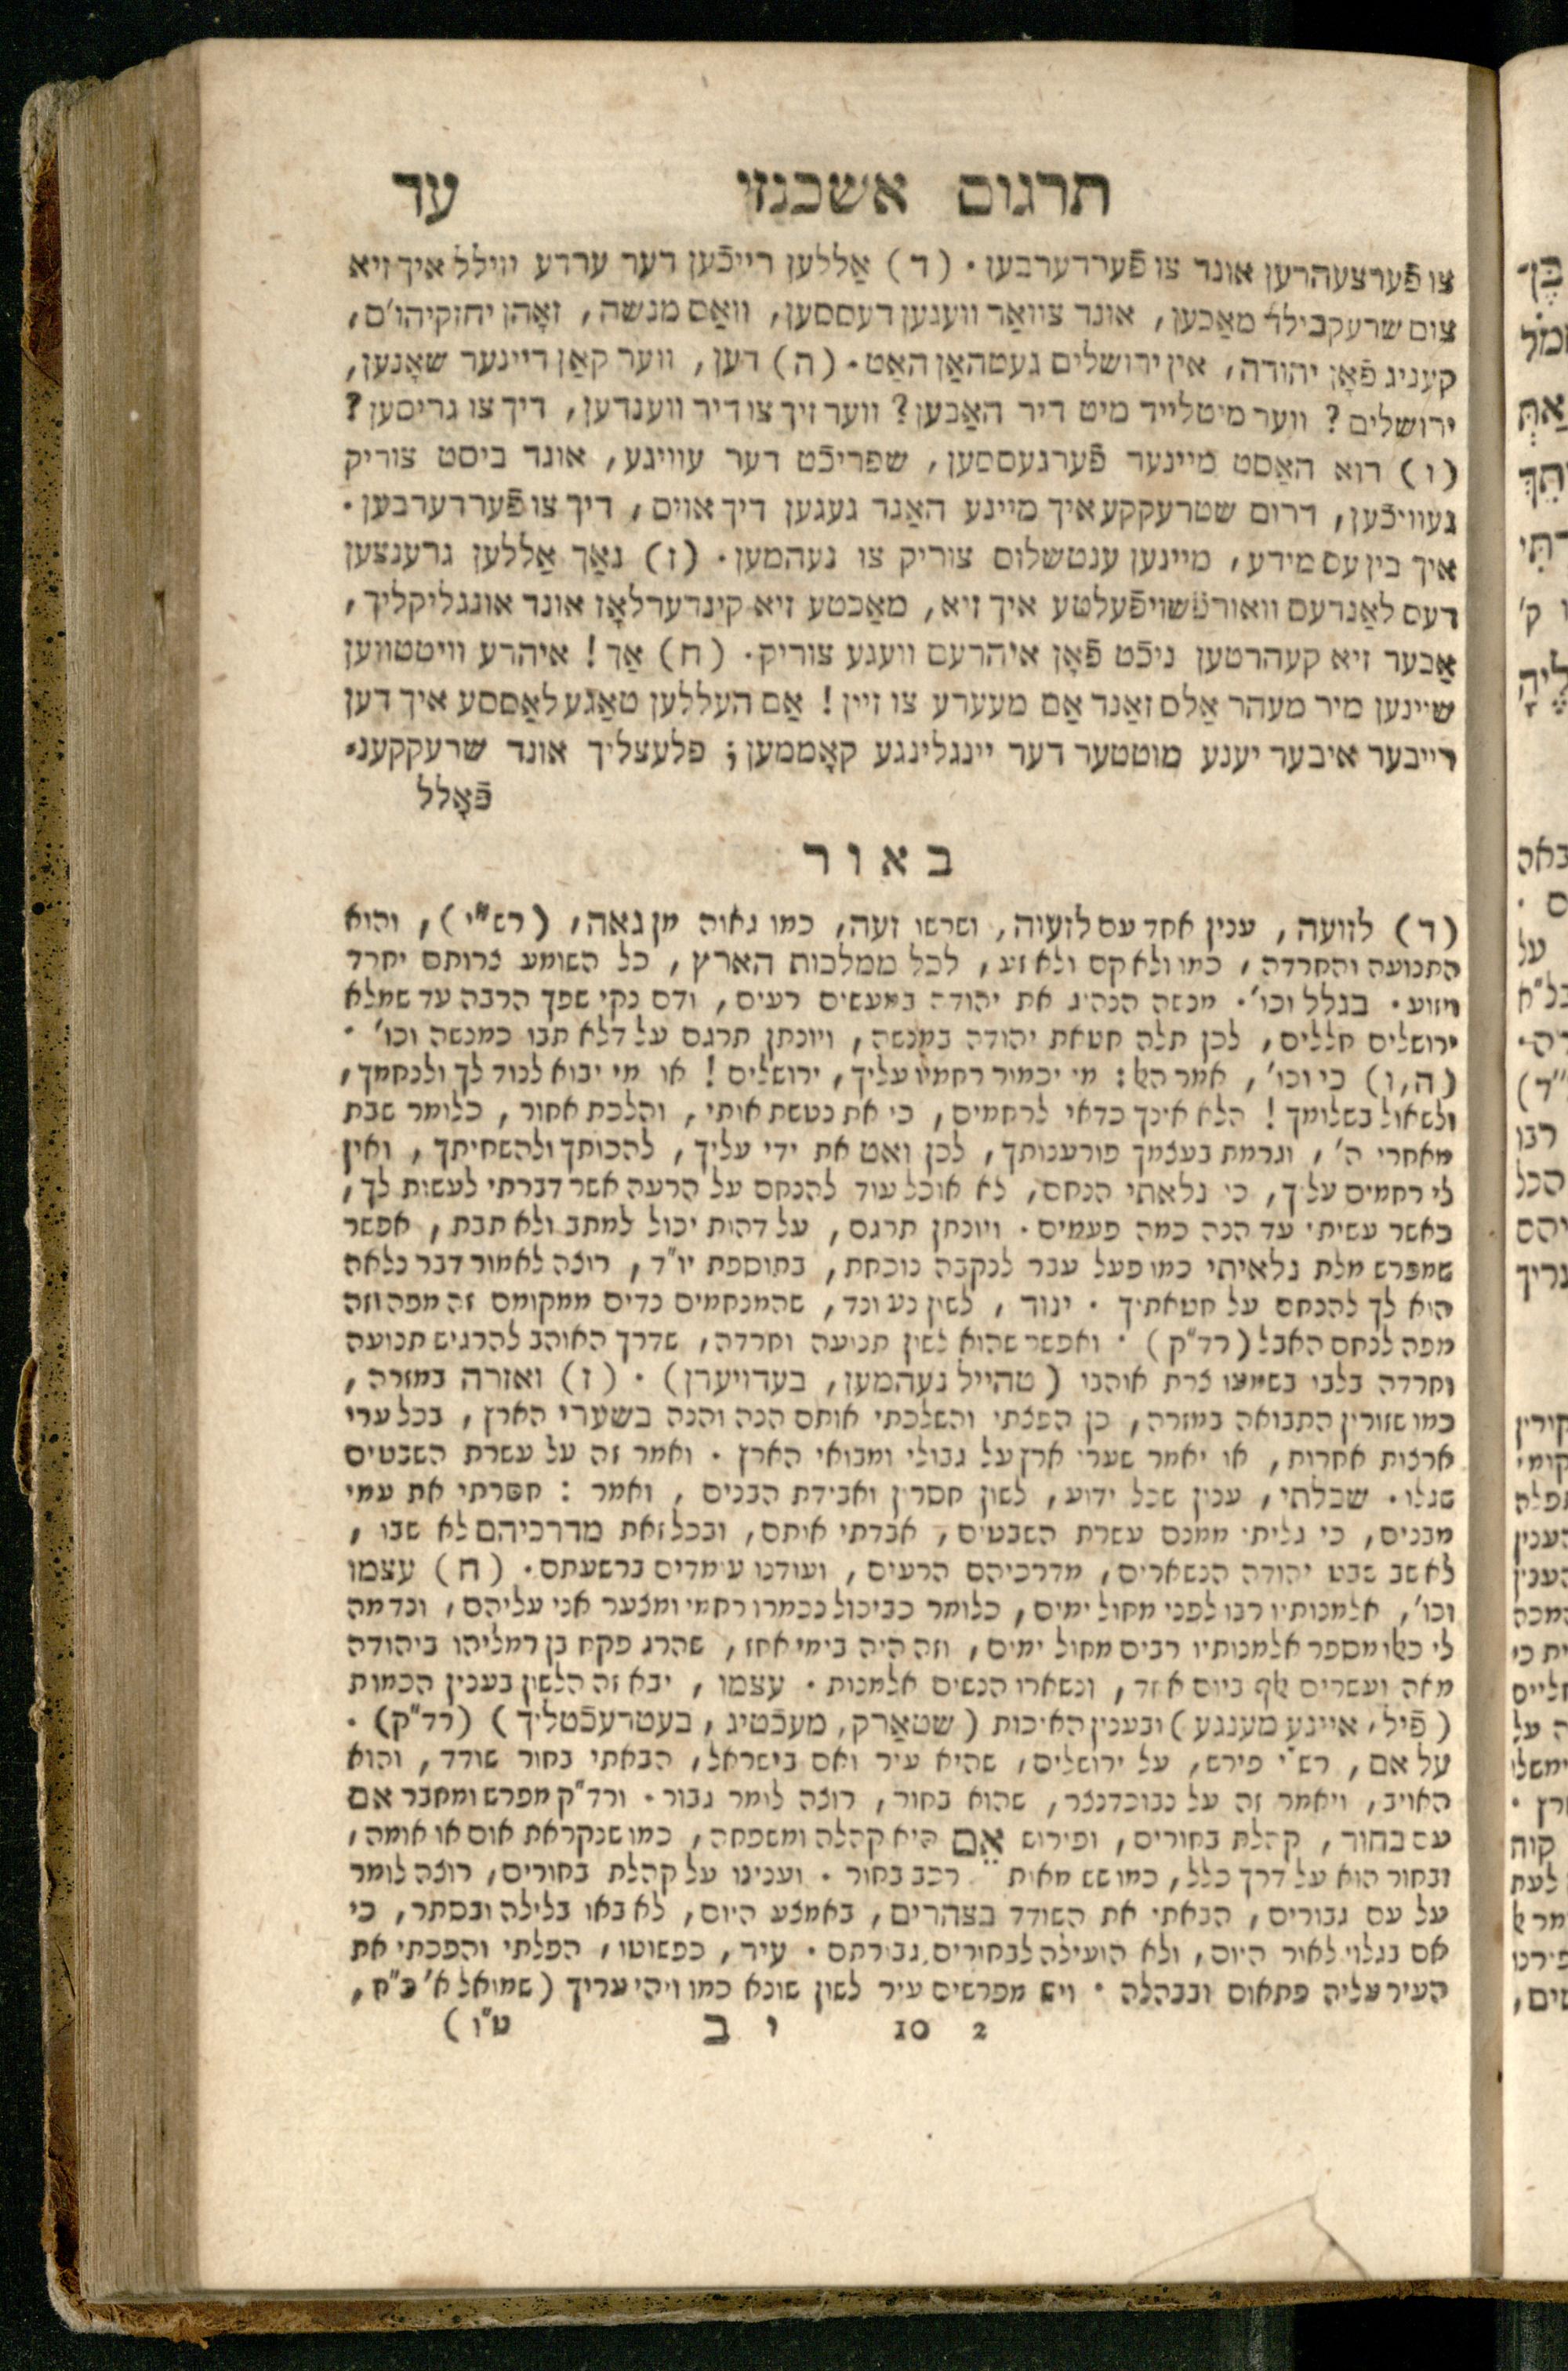 תרגום אשכנזי עד
צו פֿערצעהרען אונד צו פֿערדערבען . (ד) אַללען רייכֿען דער ערדע ווילל איך זיא
צום שרעקבילד מאַכען , אונד צוואַר וועגען דעססען , וואַס מנשה , זאָהן יחזקיהו'ם ,
קעניג פֿאָן יהודה , אין ירושלים געטהאַן האַט . (ה) דען , ווער קאַן דיינער שאָנען ,
ירושלים ? ווער מיטלייד מיט דיר האַבען ? ווער זיך צו דיר ווענדען , דיך צו גריסען ?
(ו) דוא האַסט מיינער פֿערגעססען , שפריכֿט דער עוויגע , אונד ביסט צוריק
געוויכֿען , דרום שטרעקקע איך מיינע האַנד געגען דיך אויס , דיך צו פֿערדערבען .
איך בין עס מידע , מיינען ענטשלוס צוריק צו נעהמען . (ז) נאַך אַללען גרענצען
דעס לאַנדעס וואורפֿשויפֿעלטע איך זיא , מאַכטע זיא קינדערלאָז אונד אונגליקליך ,
אַבער זיא קעהרטען ניכֿט פֿאָן איהרעם וועגע צוריק . (ח) אַך ! איהרע וויטטווען
שיינען מיר מעהר אַלס זאַנד אַם מעערע צו זיין ! אַם העללען טאַגע לאַססע איך דען
רייבער איבער יענע מוטטער דער יינגלינגע קאָממען ; פלעצליך אונד שרעקקענ⸗
פֿאָלל
באור
(ד) לזועה , ענין אחד עם לזעוה , ושרשו זעה , כמו גאוה מן גאה , (רש"י) , והוא
התנועה והחרדה , כמו ולא קם ולא זע , לכל ממלכות הארץ , כל השומע צרותם יחרד
ויזוע . בגלל וכו' . מנשה הנהיג את יהודה במעשים רעים , ודם נקי שפך הרבה עד שמלא
ירושלים חללים , לכן תלה חטאת יהודה במנשה , ויונתן תרגם על דלא תבו כמנשה וכו' .
(ה, ו) כי וכו' , אמר הﭏ : מי יכמור רחמיו עליך , ירושלים ! או מי יבוא לנוד לך ולנחמך ,
ולשאול בשלומך ! הלא אינך כדאי לרחמים , כי את נטשת אותי , והלכת אחור , כלומר שבת
מאחרי ה' , וגרמת בעצמך פורענותך , לכן ואט את ידי עליך , להכותך ולהשחיתך , ואין
לי רחמים עליך , כי נלאתי הנחם , לא אוכל עוד להנחם על הרעה אשר דברתי לעשות לך ,
כאשר עשיתי עד הנה כמה פעמים . ויונתן תרגם , על דהות יכול למתב ולא תבת , אפשר
שמפרש מלת נלאיתי כמו פעל עבר לנקבה נוכחת , בתוספת יו"ד , רוצה לאמור דבר נלאה
הוא לך להנחם על חטאתיך . ינוד , לשון נע ונד , שהמנחמים נדים ממקומם זה מפה וזה
מפה לנחם האבל (רד"ק) . ואפשר שהוא לשון תנועה וחרדה , שדרך האוהב להרגיש תנועה
וחרדה בלבו בשמעו צרת אוהבו (טהייל נעהמען , בעדויערן) . (ז) ואזרה במזרה ,
כמו שזורין התבואה במזרה , כן הפצתי והשלכתי אותם הנה והנה בשערי הארץ , בכל ערי
ארצות אחרות , או יאמר שערי ארץ על גבולי ומבואי הארץ . ואמר זה על עשרת השבטים
שגלו . שכלתי , ענין שכל ידוע , לשון חסרון ואבידת הבנים , ואמר : חסרתי את עמי
מבנים , כי גליתי ממנם עשרת השבטים , אבדתי אותם , ובכל זאת מדרכיהם לא שבו ,
לא שב שבט יהודה הנשארים , מדרכיהם הרעים , ועודנו עומדים ברשעתם . (ח) עצמו
וכו' , אלמנותיו רבו לפני מחול ימים , כלומר כביכול נכמרו רחמי ומצער אני עליהם , ונדמה
לי כﭏו מספר אלמנותיו רבים מחול ימים , וזה היה בימי אחז , שהרג פקח בן רמליהו ביהודה
מאה ועשרים ﭏף ביום אחד , ונשארו הנשים אלמנות . עצמו , יבא זה הלשון בענין הכמות
(פֿיל , איינע מענגע) ובענין האיכות (שטאַרק , מעכֿטיג , בעטרעכֿטליך) (רד"ק) .
על אם , רש"י פירש , על ירושלים , שהיא עיר ואם בישראל , הבאתי בחור שודד , והוא
האויב , ויאמר זה על נבוכדנצר , שהוא בחור , רוצה לומר גבור . ורד"ק מפרש ומחבר אם
עם בחור , קהלת בחורים , ופירוש אֵם היא קהלה ומשפחה , כמו שנקראת אום או אומה ,
ובחור הוא על דרך כלל , כמו שש מאות רכב בחור . וענינו על קהלת בחורים , רוצה לומר
על עם גבורים , הבאתי את השודד בצהרים , באמצע היום , לא באו בלילה ובסתר , כי
אם בגלוי לאור היום , ולא הועילה לבחורים גבורתם . עיר , כפשוטו , הפלתי והפכתי את
העיר עליה פתאום ובבהלה . ויש מפרשים עיר לשון שונא כמו ויהי עריך (שמואל א' כ"ח ,
10 2 י ב ט"ו)